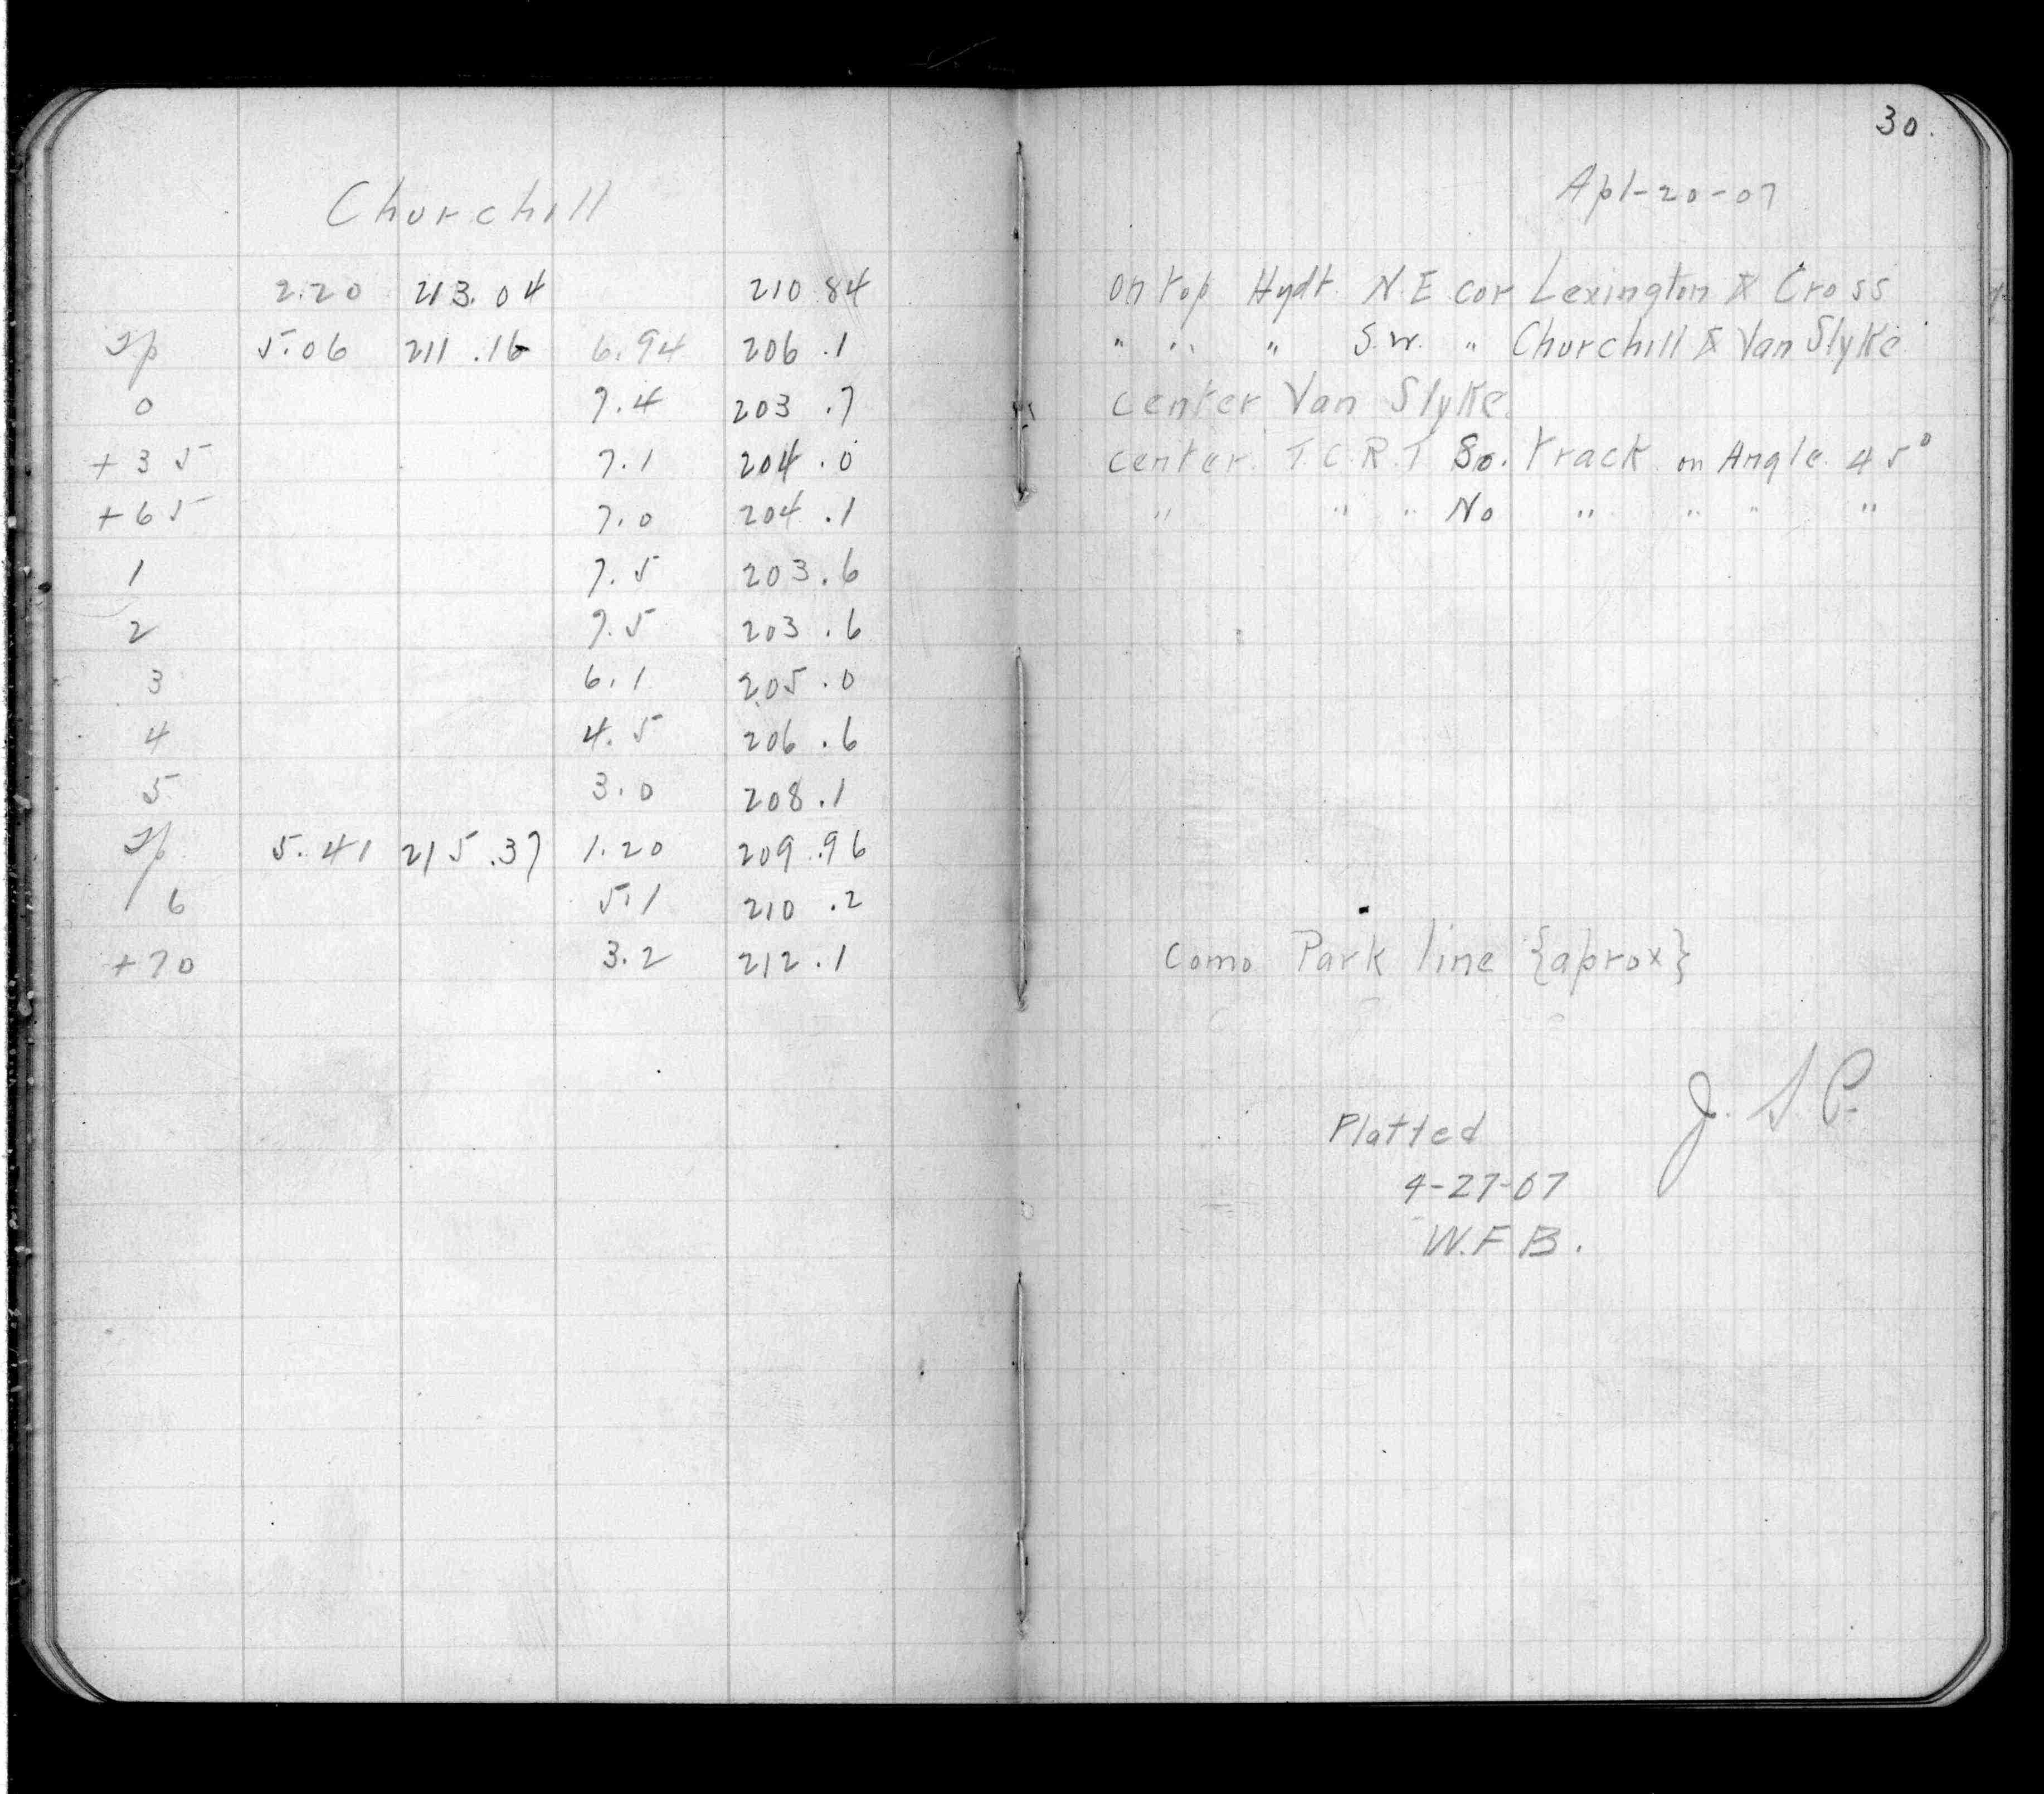 30.
Churchill
Apl-20-07
2.20 213.04 210 84 on top Hydt. N.E cor Lexington & Cross
Tp 5.06 211.16 6.94 206.1 " " " S.W. " Churchill & Van Slyke
0 7.4 203.7 center Van Slyke
+35 7.1 204.0 center T.C.R.T So. track on Angle 45°
+65 7.0 204.1 " " " No " " " "
1 7.5 203.6
2 7.5 203.6
3 6.1 205.0
4 4.5 206.6
5 3.0 208.1
Tp 5.41 215.37 1.20 209.96
6 5.1 210.2
+70 3.2 212.1 Como Park line {aprox}
J. S. P.
Platted
4-27-07
W.F.B.